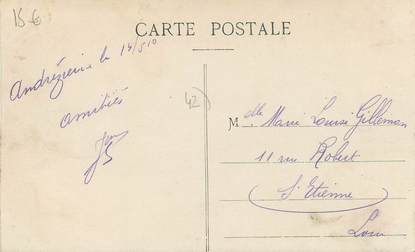 15 €
CARTE POSTALE
Andrézieux le 13/5 10
amitiés
42
Mdlle Marie Louise Gilleman
11 rue Robert
St Etienne
Loire